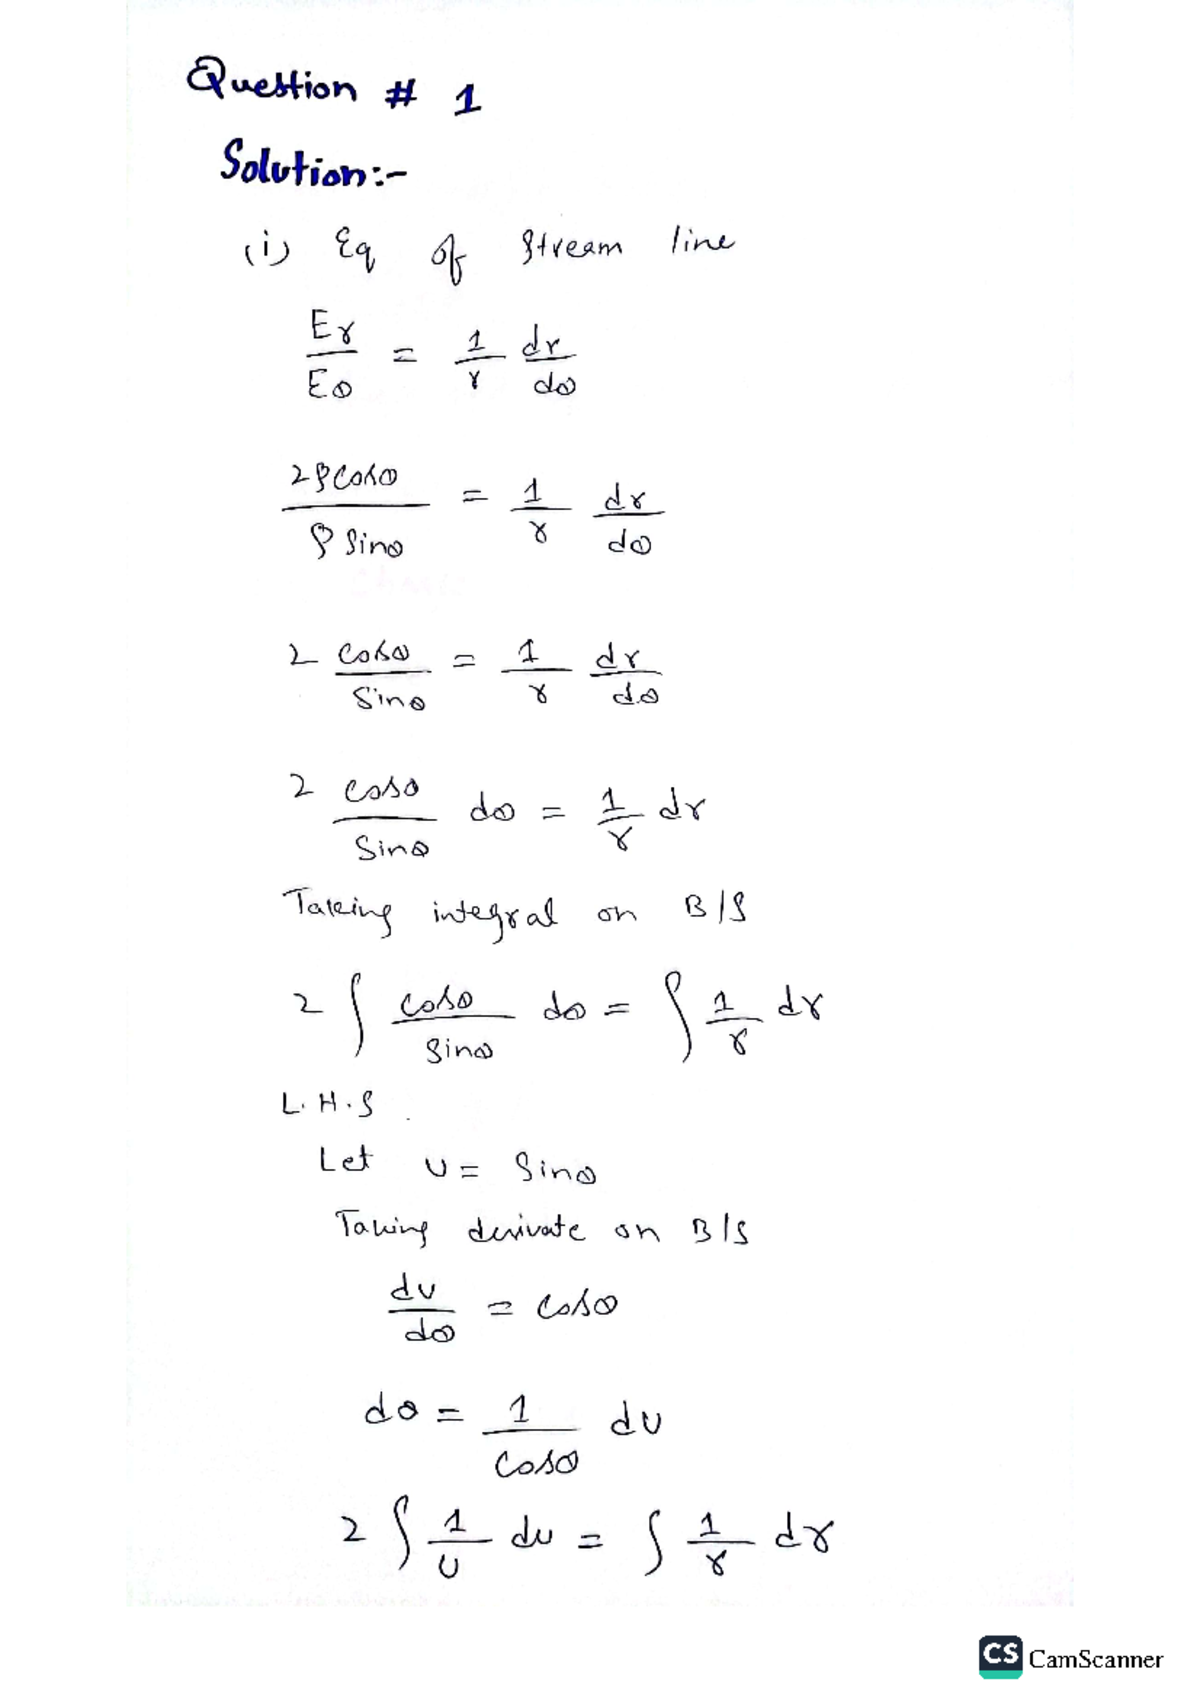 Question # 1
Solution:-
(i) Eq of Stream line
Er/Eθ = 1/r dr/dθ
2ρCosθ/ρ Sinθ = 1/r dr/dθ
2 Cosθ/Sinθ = 1/r dr/dθ
2 Cosθ/Sinθ dθ = 1/r dr
Taking integral on B/S
2 ∫ Cosθ/Sinθ dθ = ∫ 1/r dr
L.H.S
Let u = Sinθ
Taking derivate on B/S
du/dθ = Cosθ
dθ = 1/Cosθ du
2 ∫ 1/u du = ∫ 1/r dr
CS CamScanner